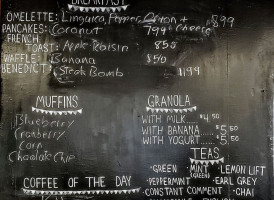 BREAKFAST
OMELETTE: Linguica, Pepper, Onion + Cheese $8.99
PANCAKES: Coconut 7.99
FRENCH TOAST: Apple Raisin 8.50
WAFFLE: Banana 8.50
BENEDICT: Steak Bomb 11.99
MUFFINS
Blueberry
Cranberry
Corn
Chocolate Chip
GRANOLA
WITH MILK.... 4.50
WITH BANANA..... 5.50
WITH YOGURT.. 5.50
TEAS
·GREEN ·MINT (GREEN) ·LEMON LIFT
·PEPPERMINT ·EARL GREY
·CONSTANT COMMENT ·CHAI
COFFEE OF THE DAY